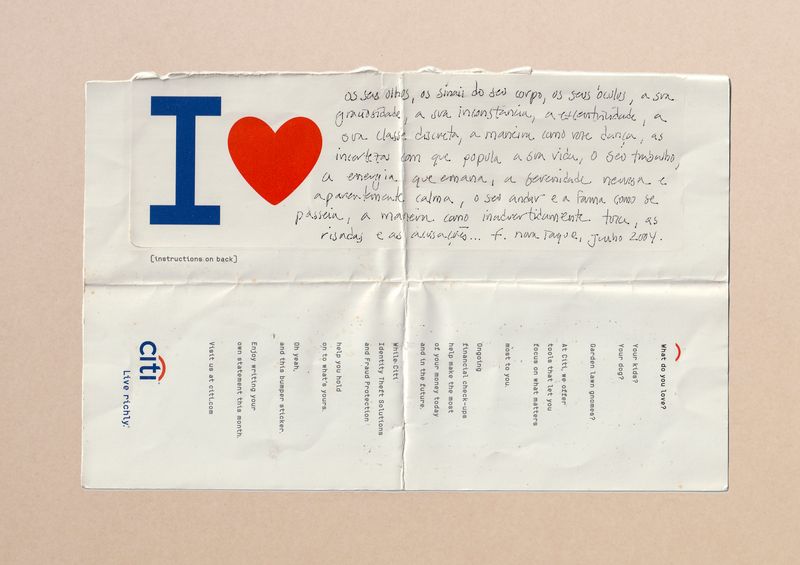 I
os seus olhos, os sinais do seu corpo, os seus óculos, a sua
graciosidade, a sua inconstância, a excentricidade, a
sua classe discreta, a maneira como você dança, as
incertezas com que popula a sua vida, o seu trabalho,
a energia que emana, a serenidade nervosa e
aparentemente calma, o seu andar e a forma como se
passeia, a maneira como inadvertidamente toca, as
risadas e as acusações... f. nova Iaque, junho 2004.
[instructions on back]
What do you love?
Your kids?
Your dog?
Garden lawn gnomes?
At Citi, we offer
tools that let you
focus on what matters
most to you.
Ongoing
financial check-ups
help make the most
of your money today
and in the future.
While Citi
Identity Theft Solutions
and Fraud Protection
help you hold
on to what's yours.
Oh yeah,
and this bumper sticker.
Enjoy writing your
own statement this month.
Visit us at citi.com
citi
Live richly.